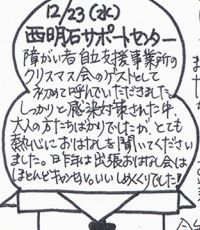 12/23(水)
西明石サポートセンター
障がい者自立支援事業所の
クリスマス会のゲストとして
初めて呼んでいただきました。
しっかりと感染対策された中、
大人の方たちばかりでしたが、とても
熱心におはなしを聞いてください
ました。昨年は出張おはなし会は
ほとんどキャンセル。いいしめくくりでした!